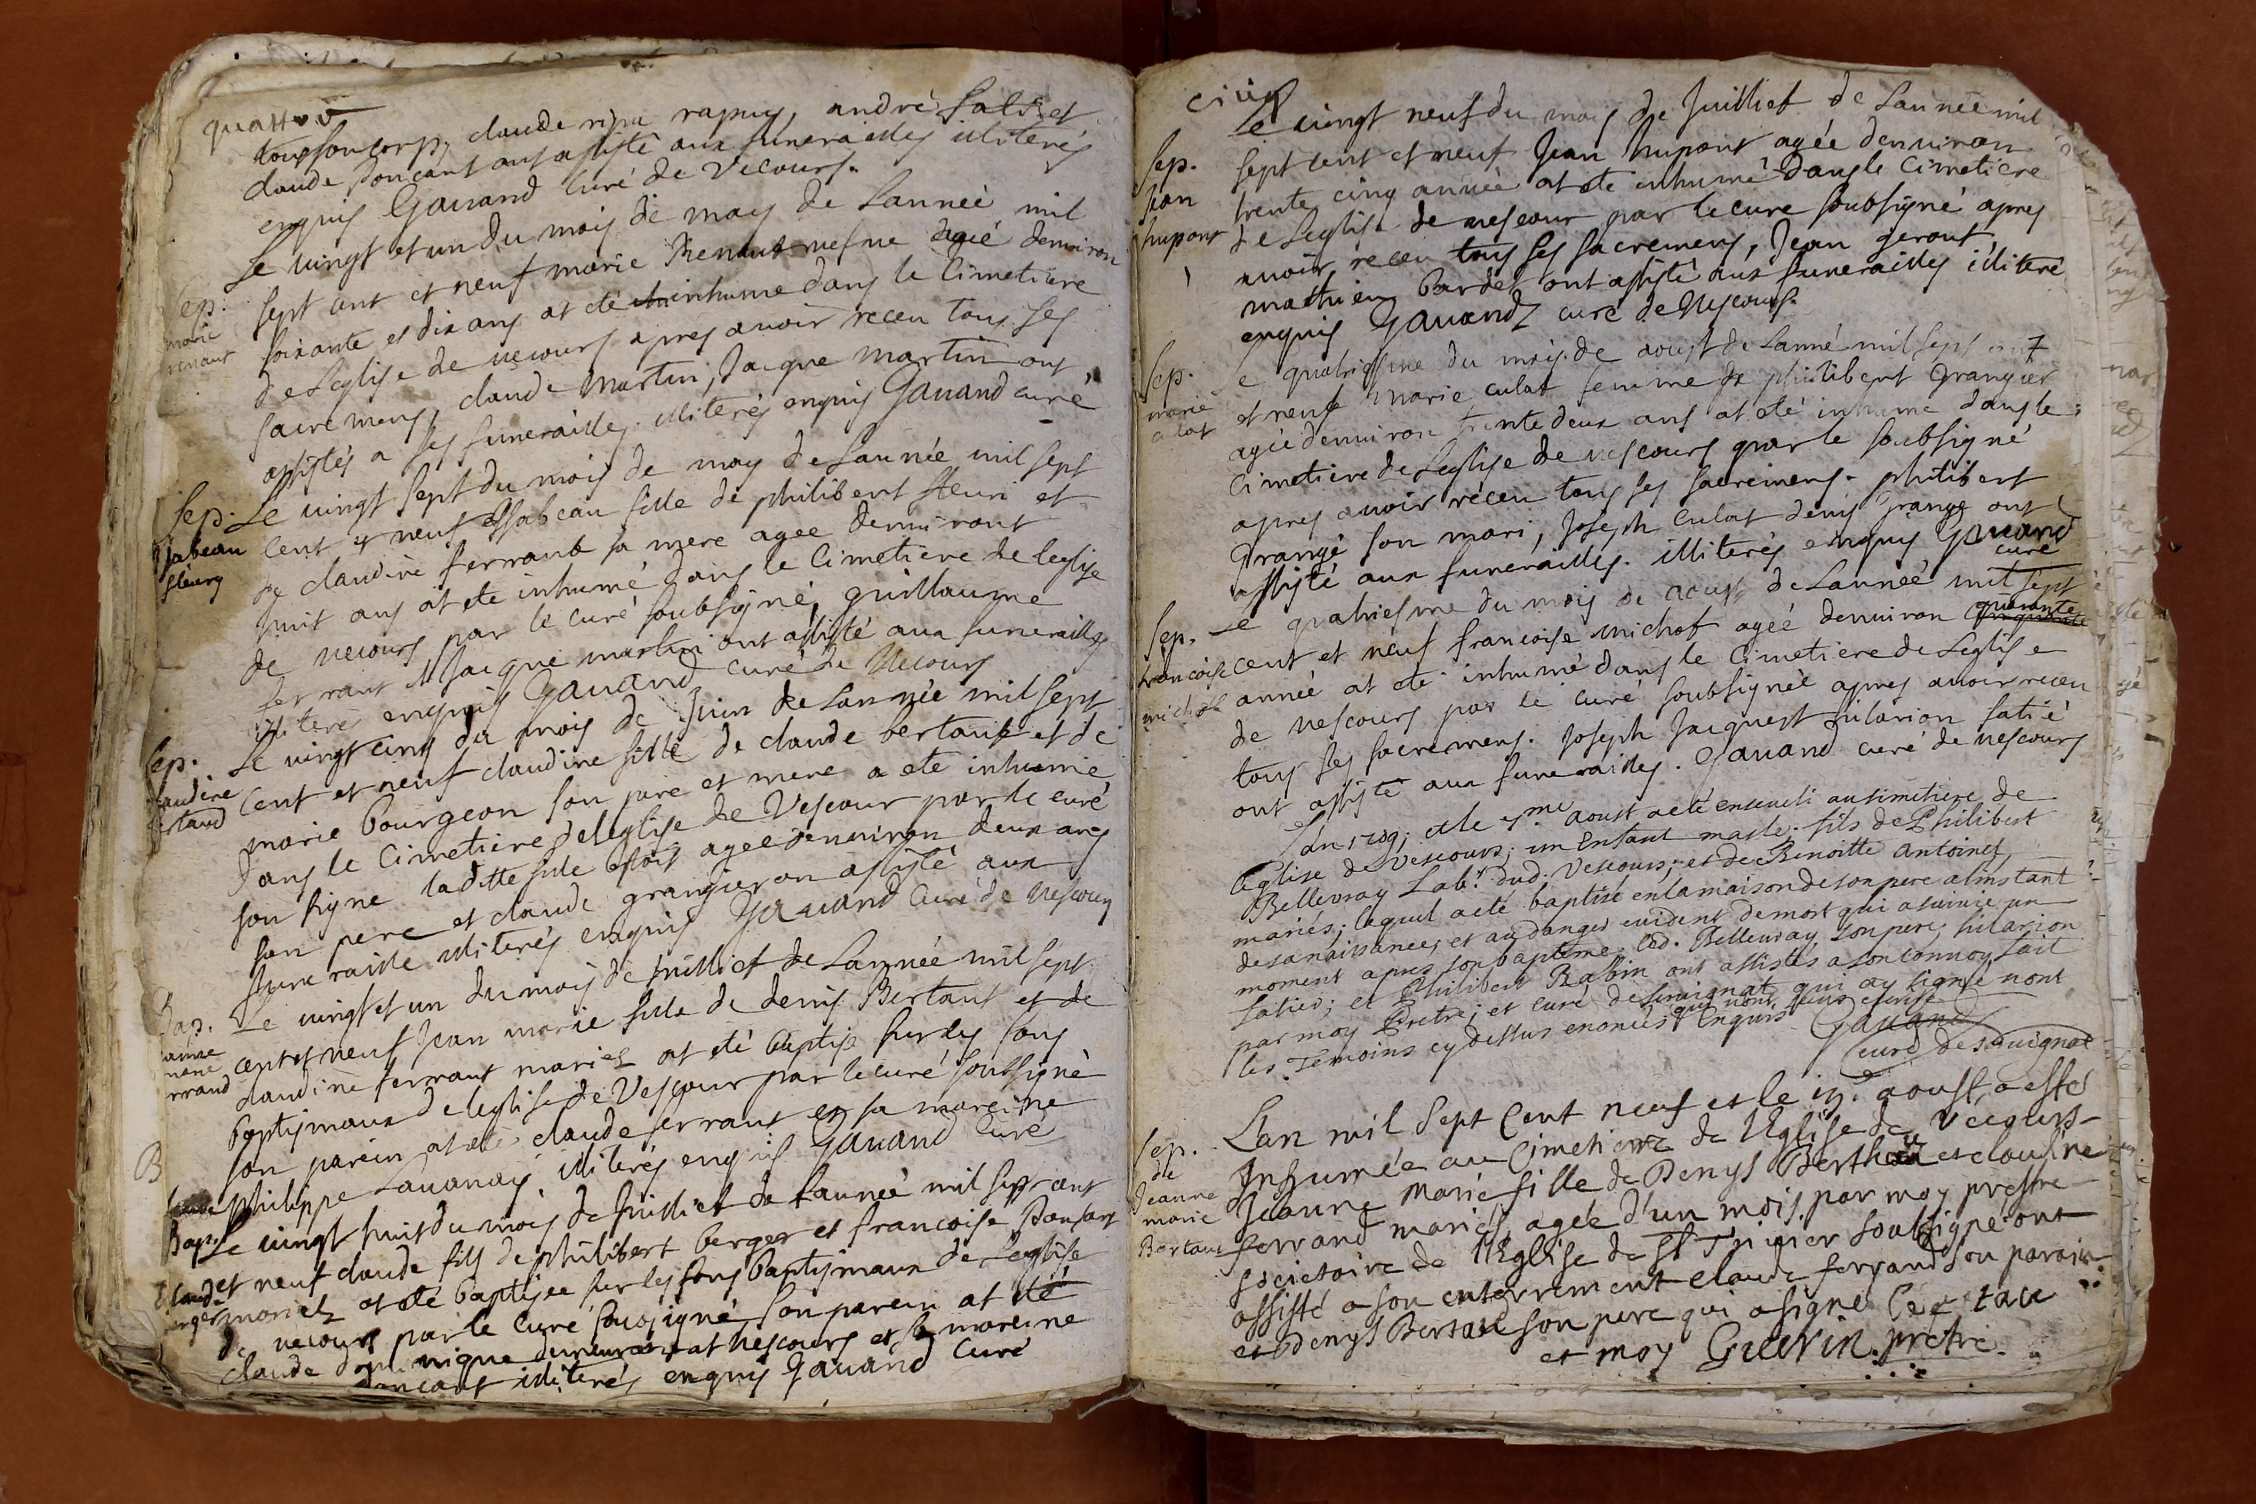 quattre
tous son corps, claude rapuy, andré
claude Ponçant ont assisté aux funerailles illiterés
enquis Gauand Curé de Vecours.
Sep.
marie
renaut
Le vingt et un du mois de may de Lanneé mil
sept cent et neuf marie Renaut agée denuiron
soixante et dix ans at été inhume dans le Cimetiere
de Leglise de vecours apres auoir receu tous ses
sacremens, claude Martin, Jacque martin ont
assistés a ses funerailles. illiterés enquis Gauand curé
Sep.
ysabeau
fleury
Le vingt sept du mois de may de Lannée mil sept
Cent et neuf ysabeau fille de philibert fleuri et
de claudine ferrant sa mere agee denuiront
huit ans at ete inhumé dans le Cimetiere de leglise
de vecours par le curé soubsigné, guillaume
ferrant Jacque martin ont assisté aux funerailles
illiterés enquis Gauand curé de Vecours
Sep.
audine
rtaud
Le vingt cinq du mois de Juin de Lannée mil sept
Cent et neuf claudine fille de claude bertaut et de
marie bourgeon son pere et mere a ete inhumé
dans le Cimetiere de leglise de Vescour par le curé
sou signe laditte fille estois agee denuiron deux ans
son pere et claude grangier on assisté aux
funeraille illiterés enquis Gauand Curé de Vescours
Bap.
marie
rrand
Le vingt et un du mois de Juilliet de Lannée mil sept
cent et neuf Jean marie fille de denis Bertaut et de
claudine ferrant mariés at eté baptisé sur les fons
baptismaux de leglise de Vescour par le curé soussigné
son parein at eté claude ferrant et sa mareine
philippe Lauanay illiterés enquis Gauand curé
B
Bap.
Claude
rger
Le vingt huit du mois de Juilliet de Lanneé mil sept cent
et neuf claude fils de philibert berger et francoise Ponsant
mariez at eté baptisee sur les fons baptismaux de Leglise
de vecours par le curé sousigné, son parein at eté
claude dominique demeurant at vescours et sa mareine
poncant illiterés enquis Gauand Curé
cinq
Sep.
Jean
hupont
Le vingt neuf du mois de Juilliet de Lanneé mil
sept cent et neuf Jean hupont agée denuiron
trente cinq anneé at ete inhumé dans le Cimetiere
de Leglise de vescour par le curé soubsigné apres
auoir receu tous ses sacremens, Jean geront
mathieu bardet ont assisté aux funerailles illiteré
enquis Gauand curé de Vescours.
Sep.
marie
culat
Le quatriesme du mois de aoust de Lanné mil sept cent
et neuf Marie culat femme de philibert Grangier
agée denuiron trente deux ans at eté inhumé dans le
Cimetiere de Leglise de vescours par le soubsigné
apres auoir receu tous ses sacremens. philibert
Grangé son mari, Joseph Culat denis Grange ont
assisté aux funerailles. illiterés enquis Gauand
curé
Sep.
francoise
michot
Le quatriesme du mois de aoust de Lanneé mil sept
cent et neuf francoise michot ageé denuiron cinquante
quarante
année at eté inhumé dans le Cimetiere de Leglise
de vescours par le curé soubsignée apres auoir receu
tous ses sacremens. Joseph Jacquest hilarion fatié
ont assisté aux funerailles. Gauand curé de vescours
Lan 1709; et le 5me aoust a eté enseueli au simetiere de
leglise de vescours, un Enfant masle. fils de Philibert
Belleuray Labr. dud. Vescours, et de Benoitte antoinet
mariés, lequel a eté baptisé en la maison de son pere a linstant
de sa naissance, et au danger euident de mort qui a suiuie un
moment apres son baptême. led. Belleuray son pere, hilarion
fatier; et Philibert Rabin ont assistés a son conuoy fait
par moy Pretre, et curé de seruignat qui ay signé nont
les Temoins cy dessus enoncés enquis
qui nont
Gauand
curé de seruignat
Sep.
de
Jeanne
marie
Bertaud
Lan mil sept Cent neuf et le aoust, a esté
Inhumée au Cimetiere de lEglise de Vecours
Jeanne Marie fille de Denys Berthod et claudine
ferrand mariés, agée d'un mois, par moy prestre
societaire de l'Eglise de St Triuier soubsigné ont
assisté a son enterrement Claude ferrand son parain
et Denys Bertaud son pere qui a signé
et moy Guerin. pretre.